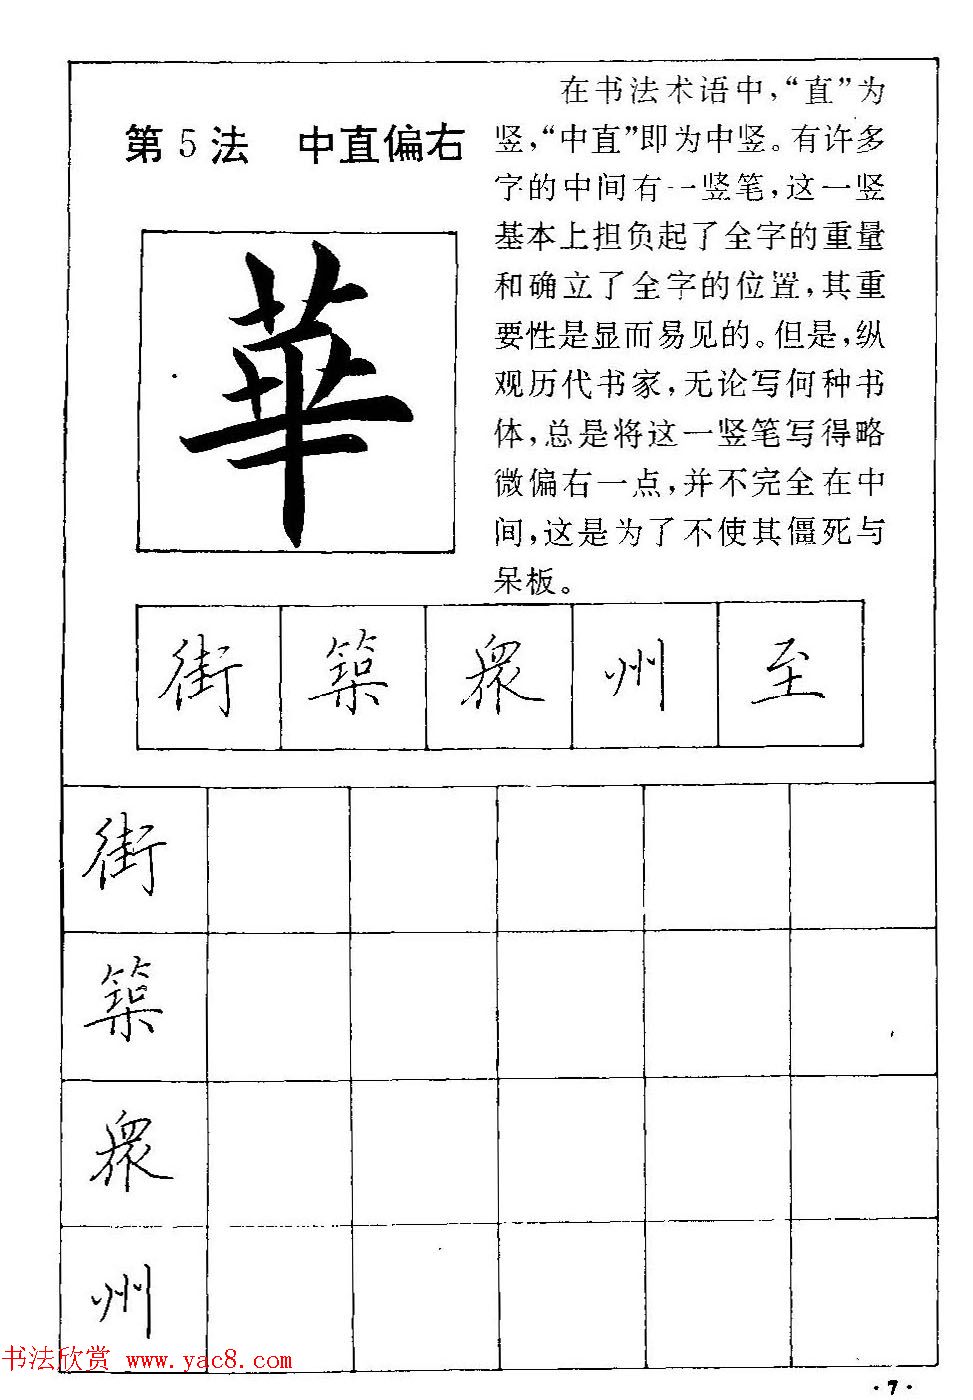 第5法 中直偏右
在书法术语中，“直”为
竖，“中直”即为中竖。有许多
字的中间有一竖笔，这一竖
基本上担负起了全字的重量
和确立了全字的位置，其重
要性是显而易见的。但是，纵
观历代书家，无论写何种书
体，总是将这一竖笔写得略
微偏右一点，并不完全在中
间，这是为了不使其僵死与
呆板。
華
街 築 眾 州 至
街
築
眾
州
书法欣赏 www.yac8.com
·7·